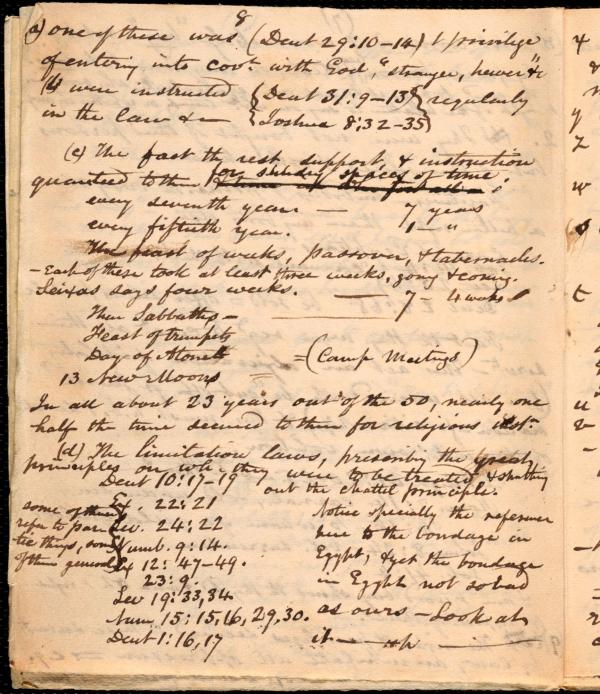 8
(a) one of these was (Deut 29:10-14) t privilige
of entering into covt. with God, "stranger, hewer" &c
(b) were instructed {Deut 31:9-13} regularly
in the law &c {Joshua 8:32-35}
(c) The fact th rest, support, & instruction
guaranteed to them for sundry spaces of time:
every seventh year — 7 years
every fiftieth year. 1 — "
The feast of weeks, passover, & tabernacles.
- Each of these took at least three weeks, going & coming.
says four weeks. — 7 - 4 weeks
Their Sabbaths —
Feast of trumpets
Day of Atonett =(Camp Meetings)
13 New Moons =
In all about 23 years out of the 50, nearly one
half the time secured to them for religious inst.
(d) The limitation laws, prescribing the
principles on wh. they were to be treated & shutting
Deut 10:17-19 out the chattel principle.
Ex. 22:21
Lev. 24:22
Numb. 9:14.
Ex 12:47-49.
23:9.
Lev 19:33,34
Num, 15:15,16,29,30.
Deut 1:16,17
some of these
refer to par
tic things, some
of them general
Notice specially the reference
here to the bondage in
Egypt, & yet the bondage
in Egypt not so bad
as ours - Look at
it —